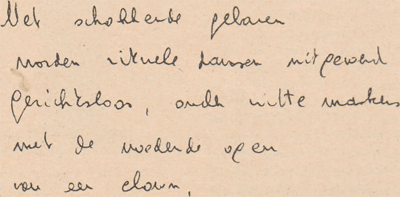 Met schokkende gebaren
worden rituele dansen uitgevoerd
gezichtsloos, onder witte maskers
met de woedende ogen
van een clown.